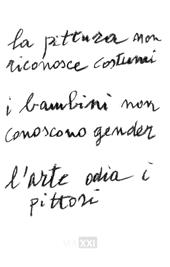 la pittura non
riconosce costumi
i bambini non
conoscono gender
l'arte odia i
pittori
XXI